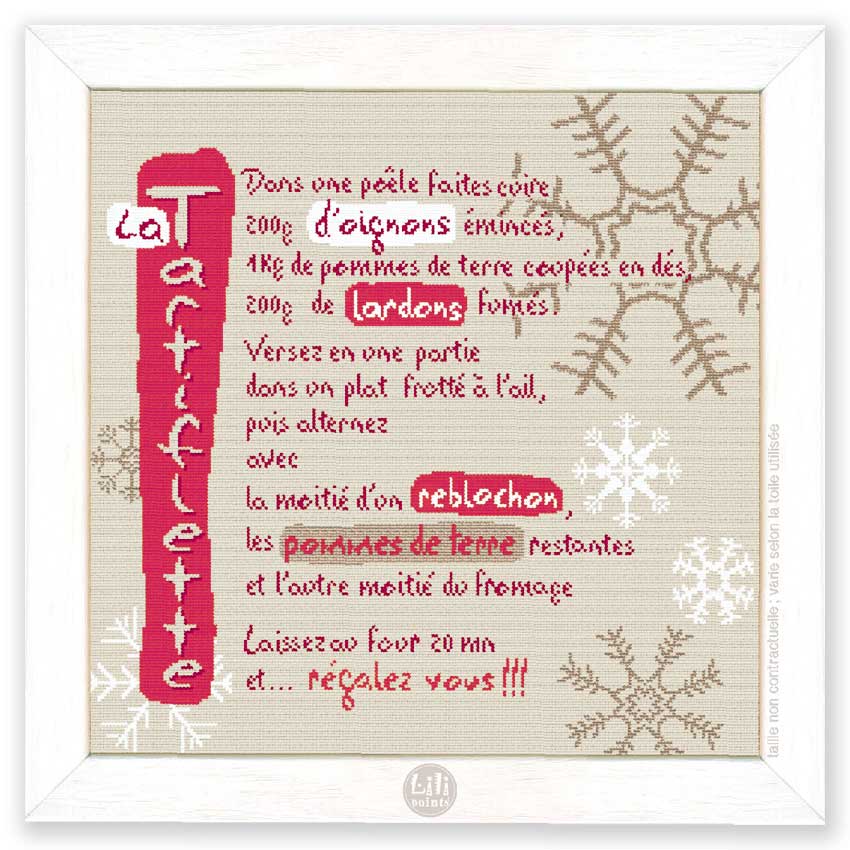 La Tartiflette
Dans une poêle faites cuire
200g d'oignons émincés,
1Kg de pommes de terre coupées en dés,
200g de lardons fumés.
Versez en une partie
dans un plat frotté à l'ail,
puis alternez
avec
la moitié d'un reblochon,
les pommes de terre restantes
et l'autre moitié du fromage
Laissez au four 20 mn
et... régalez vous!!!
taille non contractuelle ; varie selon la toile utilisée
Lili
points